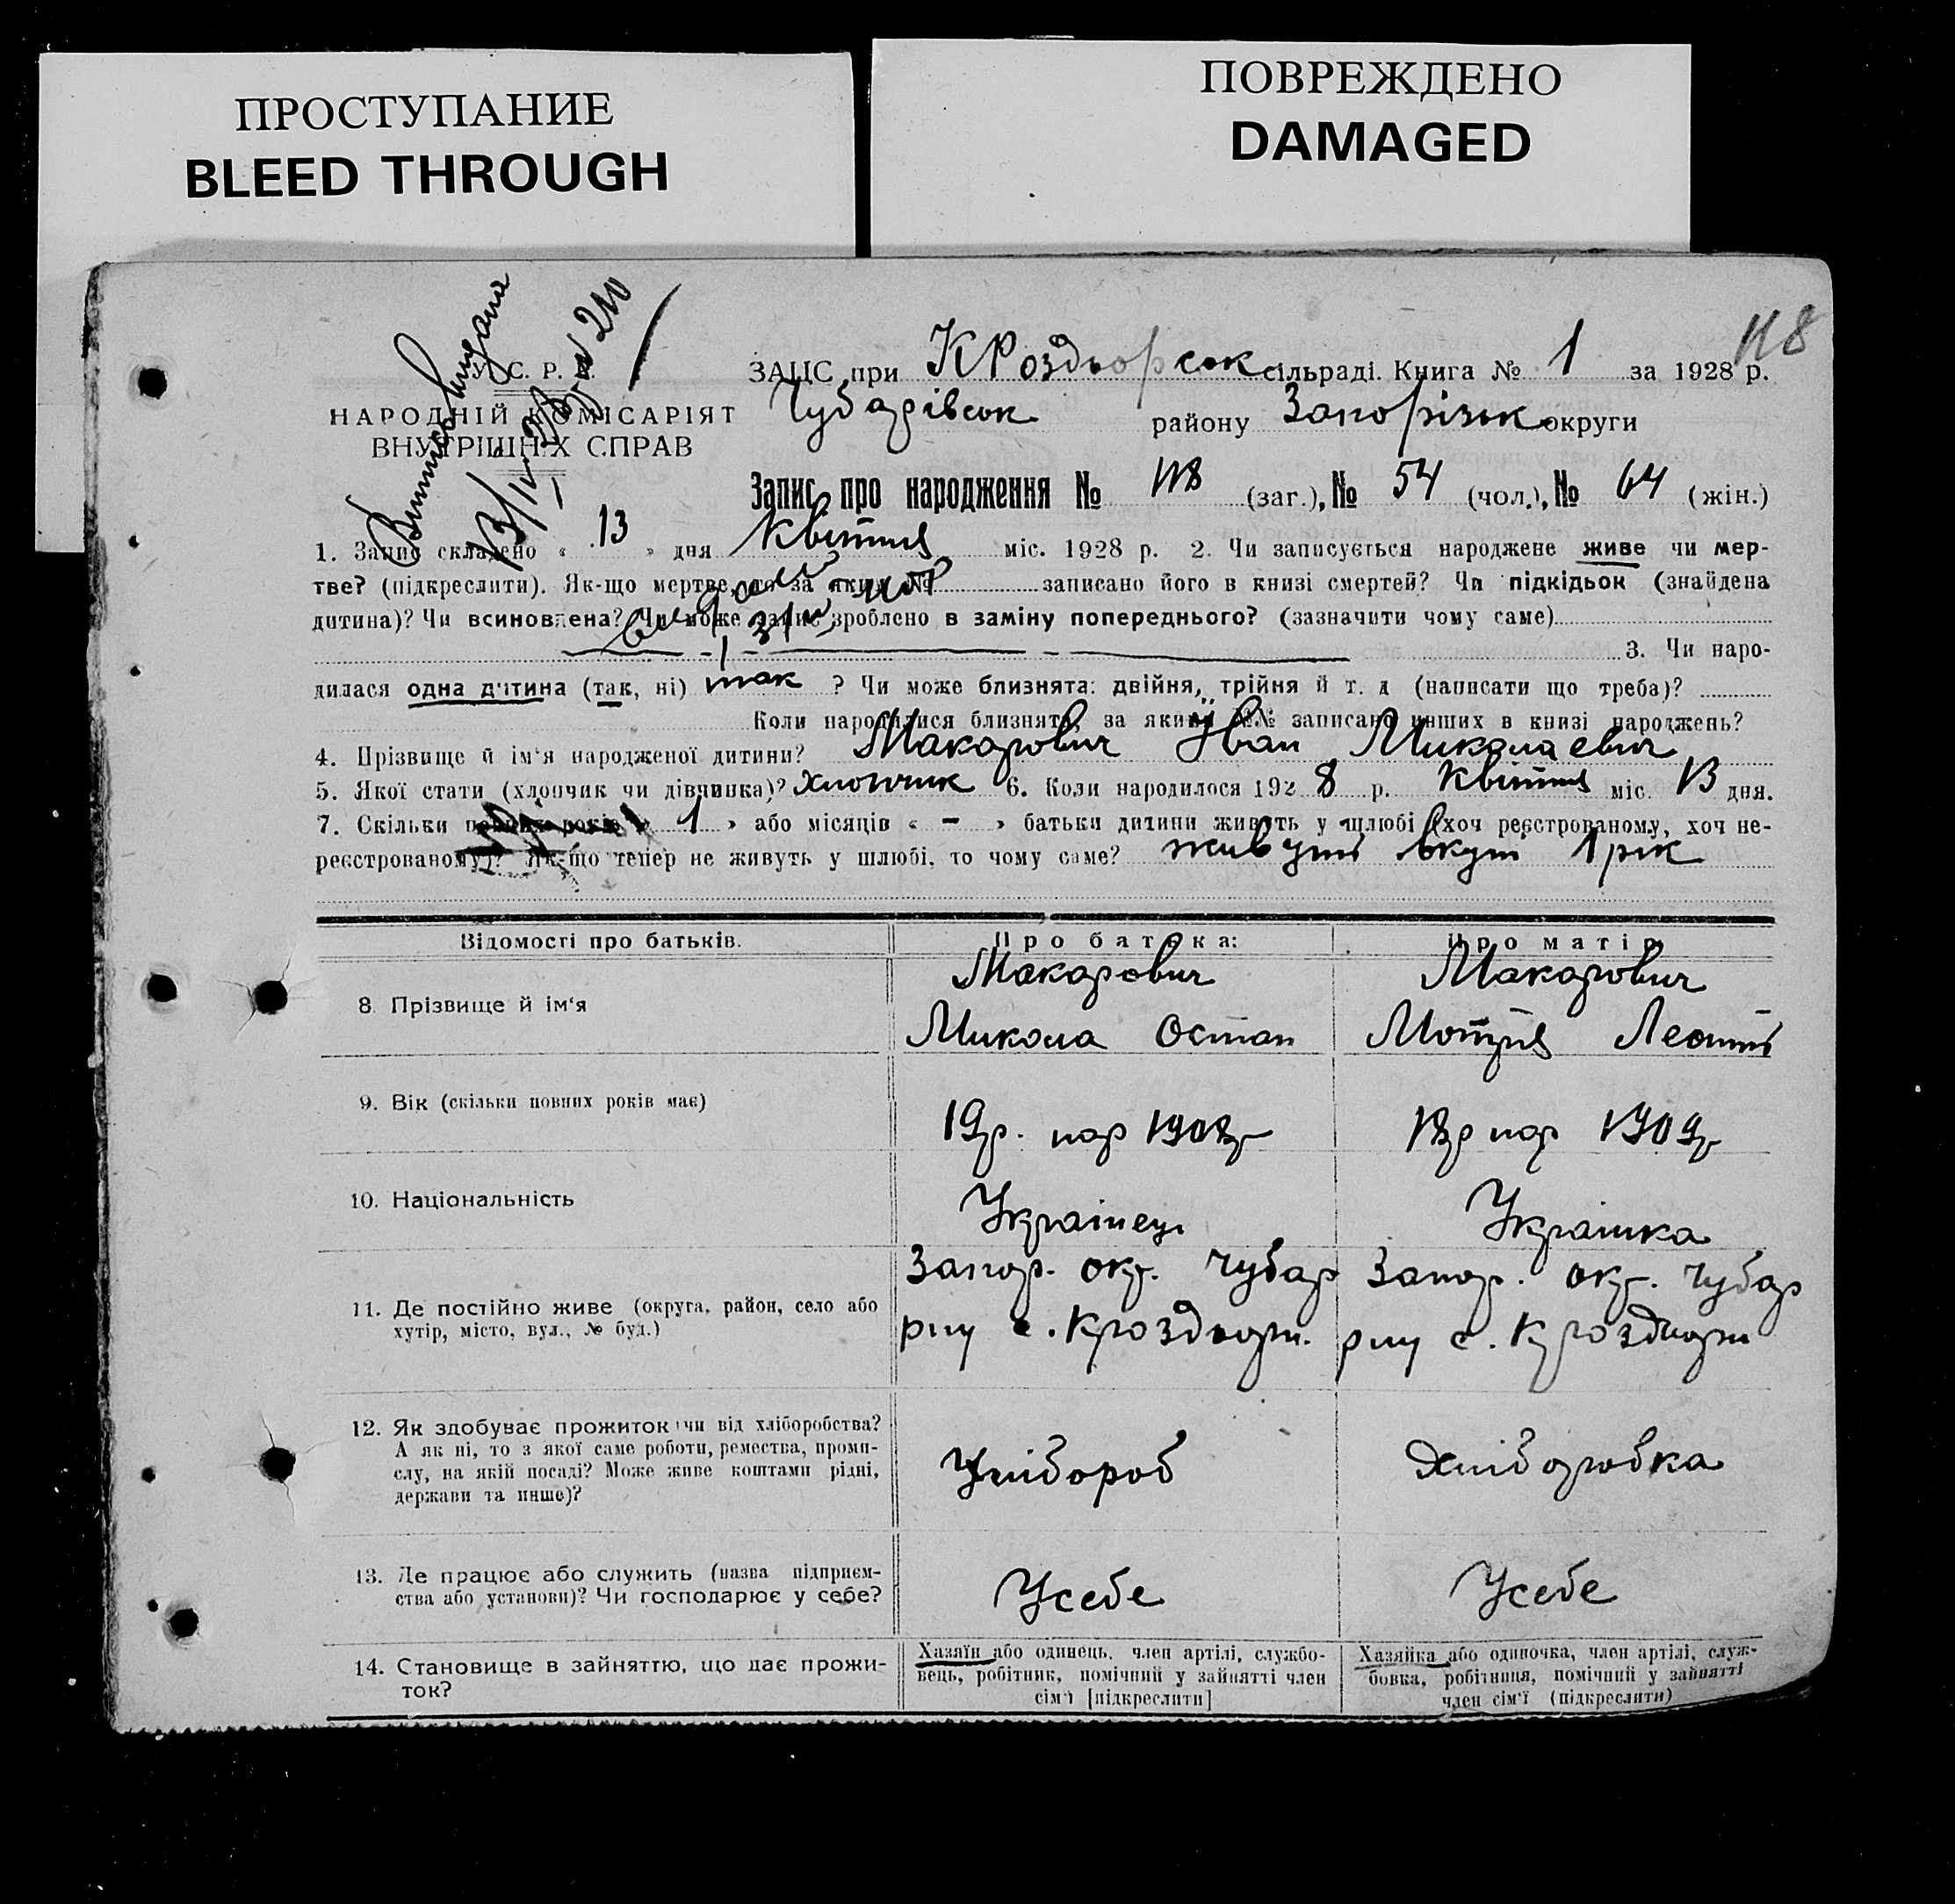 ПРОСТУПАНИЕ
BLEED THROUGH
ПОВРЕЖДЕНО
DAMAGED
118
У. С. Р. Р.
НАРОДНІЙ КОМІСАРІЯТ
ВНУТРІШНІХ СПРАВ
ЗАЦС при КРоздорсок сільраді. Книга № 1 за 1928 р.
Чубарівсок району Запорізьк округи
Запис про народження № 118 (заг.), № 54 (чол.), № 64 (жін.)
1. Запис складено « 13 » дня Квітня міс. 1928 р. 2. Чи записується народжене живе чи мер-
тве? (підкреслити). Як-що мертве, то за яким № записано його в книзі смертей? Чи підкідьок (знайдена
дитина)? Чи всиновлена? Чи може запис зроблено в заміну попереднього? (зазначити чому саме)
3. Чи наро-
дилася одна дитина (так, ні) так ? Чи може близнята: двійня, трійня й т. д (написати що треба)?
Коли народилися близнята, за якими №№ записано инших в книзі народжень?
4. Прізвище й ім'я народженої дитини? Макарович Іван Миколаевич
5. Якої стати (хлопчик чи дівчинка)? хлопчик 6. Коли народилося 1928 р. Квітня міс. 13 дня.
7. Скільки повних років « 1 » або місяців « - » батьки дитини живуть у шлюбі (хоч реєстрованому, хоч не-
реєстрованому)? Як-що тепер не живуть у шлюбі, то чому саме? живуть вкупі 1 рік
Відомості про батьків.
Про батька:
Про матір:
8. Прізвище й ім'я
Макарович
Микола Остап
Макарович
Мотря Леонті
9. Вік (скільки повних років має)
19 р. нар 1908 р
18 р нар 1909 р
10. Національність
Українец
Українка
11. Де постійно живе (округа, район, село або
хутір, місто, вул., № буд.)
Запор. окр. Чубар
рну с. Кроздори.
Запор. окр. Чубар
рну с. Кроздори
12. Як здобуває прожиток: чи від хліборобства?
А як ні, то з якої саме роботи, ремества, проми-
слу, на якій посаді? Може живе коштами рідні,
держави та инше)?
Хлібороб
Хліборобка
13. Де працює або служить (назва підприєм-
ства або установи)? Чи господарює у себе?
Усебе
Усебе
14. Становище в зайняттю, що дає прожи-
ток?
Хазяїн або одинець, член артілі, службо-
вець, робітник, помічний у зайнятті член
сім'ї [підкреслити]
Хазяйка або одиночка, член артілі, служ-
бовка, робітниця, помічний у зайнятті
член сім'ї (підкреслити)